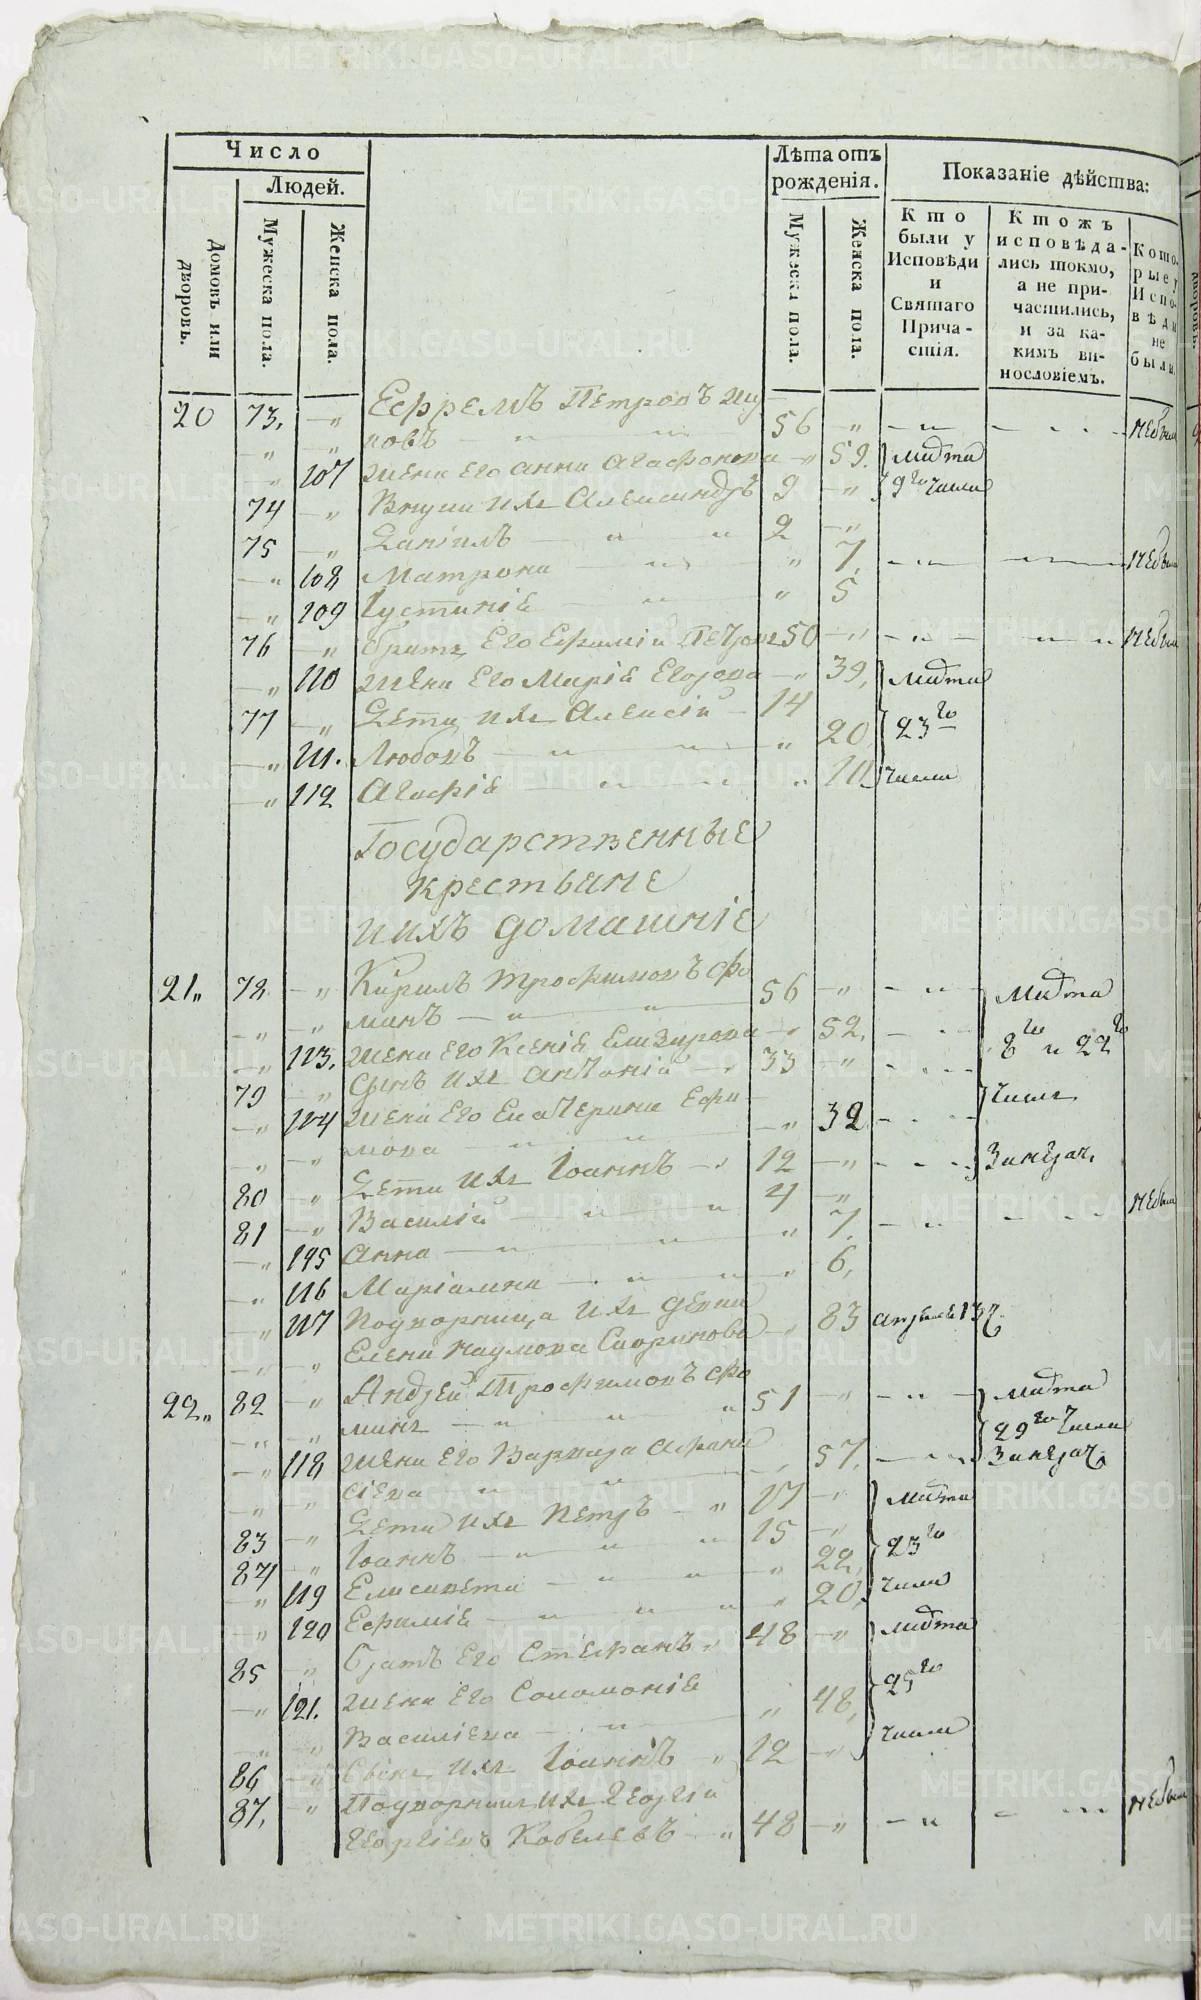 Число
Людей.
Лѣта отъ
рожденія.
Показаніе дѣйства:
Домовъ или дворовъ.
Мужеска пола.
Женска пола.
Мужеска пола.
Женска пола.
Кто были у Исповѣди и Святаго Причастія.
Ктожъ исповѣдались токмо, а не причастились, и за какимъ винословіемъ.
Которые у Исповѣди не были.
20 73. Ефремъ Петровъ 56 небыл
107 Жена Его Анна Агафонова 59. Марта
74 Внуки ихъ Александръ 9 9го числа
75 Даніилъ 2
108 Матрона 7. небыли
109 Іустинія 5
76 братъ Его Ефимій Петровъ 50 небыл
110 Жена Его Марія Егорова 39, Марта
77 Дети ихъ Алексій 14
111. Любовъ 20, 23го
112 Агафія 10 числа
Государственные
крестьяне
и ихъ домашніе
21 78 Кирилъ Трофимовъ Фо 56 Марта
минъ
113. жена Его Ксенія Елизарова 52, 8го и 22го
79 Сынъ ихъ Антоній 33 числъ
114 жена Его Екатерина Ефи
мова 32
80 Дети ихъ Іоаннъ 12
81 Василій 4 небыли
115 Анна 7,
116 Маріамна 6,
117 Подворница ихъ девка 83 апреля 13г.
Елена Наумова
22 82 Андрей Трофимовъ Фо 51 Марта
минъ 29го числа
118 жена Его Варвара Афана 57,
сіева
83 Дети ихъ Петръ 17 Марта
84 Іоаннъ 15 23го
119 Елисавета 22, числа
120 Ефимія 20,
85 братъ Его Стефанъ 48 Марта
121. жена Его Соломонія 25го
Василіева 48, числа
86 Сынъ ихъ Іоаннъ 12
87. Подворникъ ихъ Георгій небыл
Георгіевъ Кобелевъ 48
METRIKI.GASO-URAL.RU